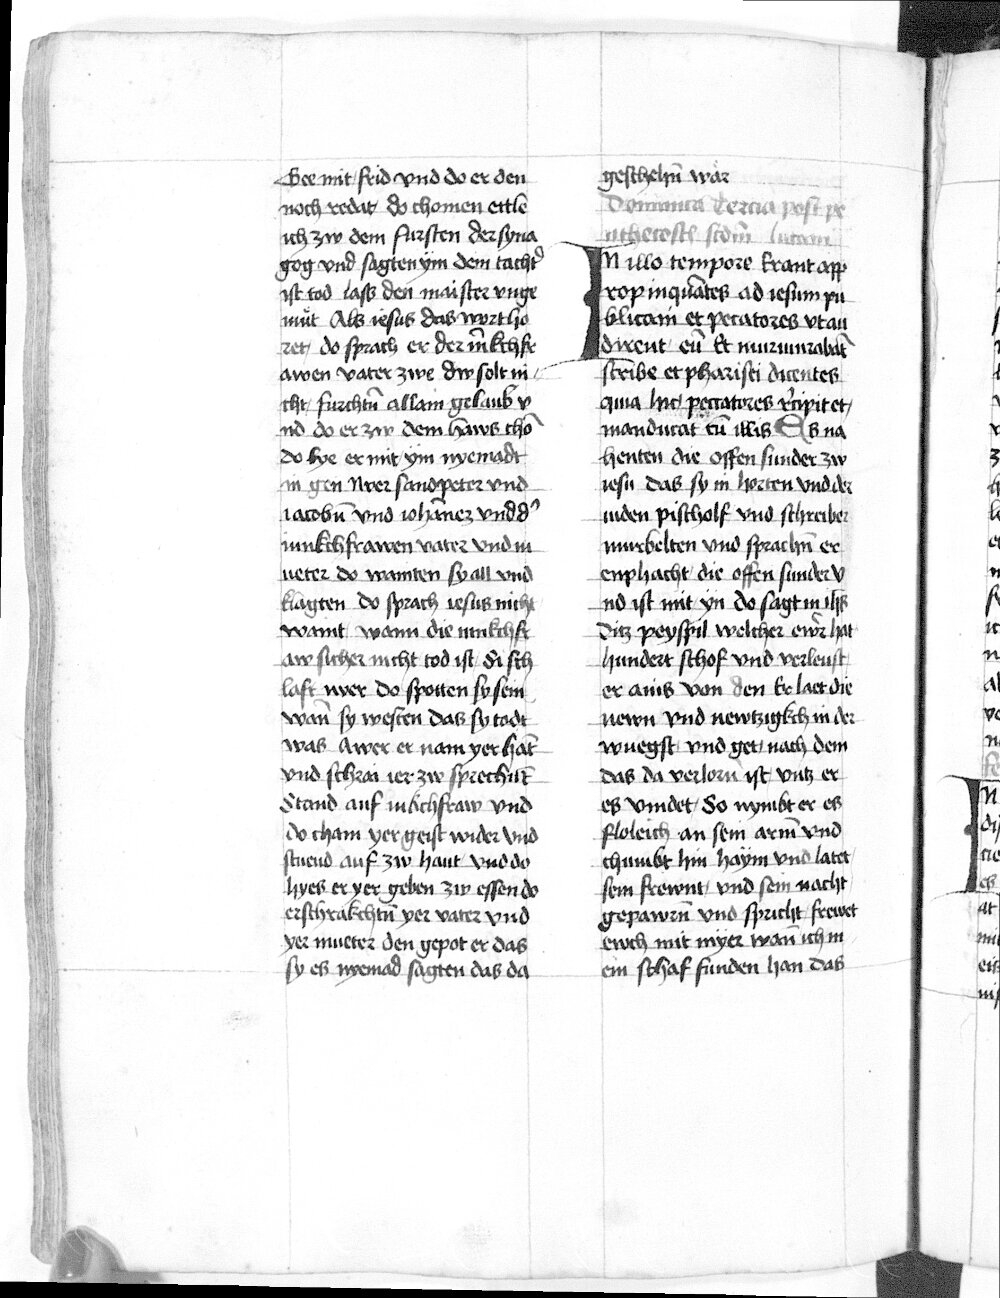 Gee mit frid vnd do er den
noch redat do chomen ettle
ich zw dem fursten der syna
gog vnd sagten ym dem tacht̉
ist tod lass den maister vnge
müt Als iesus das wort ho
ret do sprach er der iu̅kchfr
awen vater zwe dw solt ni
cht furchtn̅ allain gelaub v
nd do er zw dem haws cho̅
do lye er mit ym nyemadt
in gen wer sand peter vnd
iacobu̅ vnd ioha̅nez vnd d̉
iunkchfrawen vater vnd m
ueter do wainten sy all vnd
klagten do sprach iesus nicht
waint wann die iunkchfr
aw sicher nicht tod ist Si sch
laft wer do spotten sy sein
wan̅ sy westen das sy todt
was Awer er nam yer hant
vnd schrai ier zw sprechu̅t
Stand auf iu̅kchfraw vnd
do cham yer geist wider vnd
stuend auf zw hant vnd do
hyes er yer geben zw essen do
erschrakchtn̅ yer vater vnd
yer mueter den gepot er das
sy es nyemad sagten das da
geschehn̅ war
Dominica Tercia post pe
nthecost scdm̅ lucam
In illo tempore Erant app
ropinqua̅tes ad iesum pu
blicani et peccatores vt au
dirent eu̅ Et murmurabāt
scribe et pharisei dicentes
quia hic peccatores r̉cipit et
manducat cu̅ illis Es na
henten die offen sunder zw
iesu das sy in horten vnd der
iuden pischolf vnd schreiber
murbelten vnd sprachn̅ er
enphacht die offen sunder v
nd ist mit yn do sagt in ih̅s
ditz peyspil welcher ewr̉ hat
hundert schof vnd verleust
er ains von den Er laet die
newn vnd newtzigkch in der
wuegst vnd get nach dem
das da verlorn̅ ist vntz er
es vindet So nymbt er es
froleich an sein arm̅ vnd
chumbt hin haym vnd latet
sein frewnt vnd sein nacht
gepawrn̅ vnd spricht frewet
ewch mit myer wan̅ ich m
ein schaf funden han das